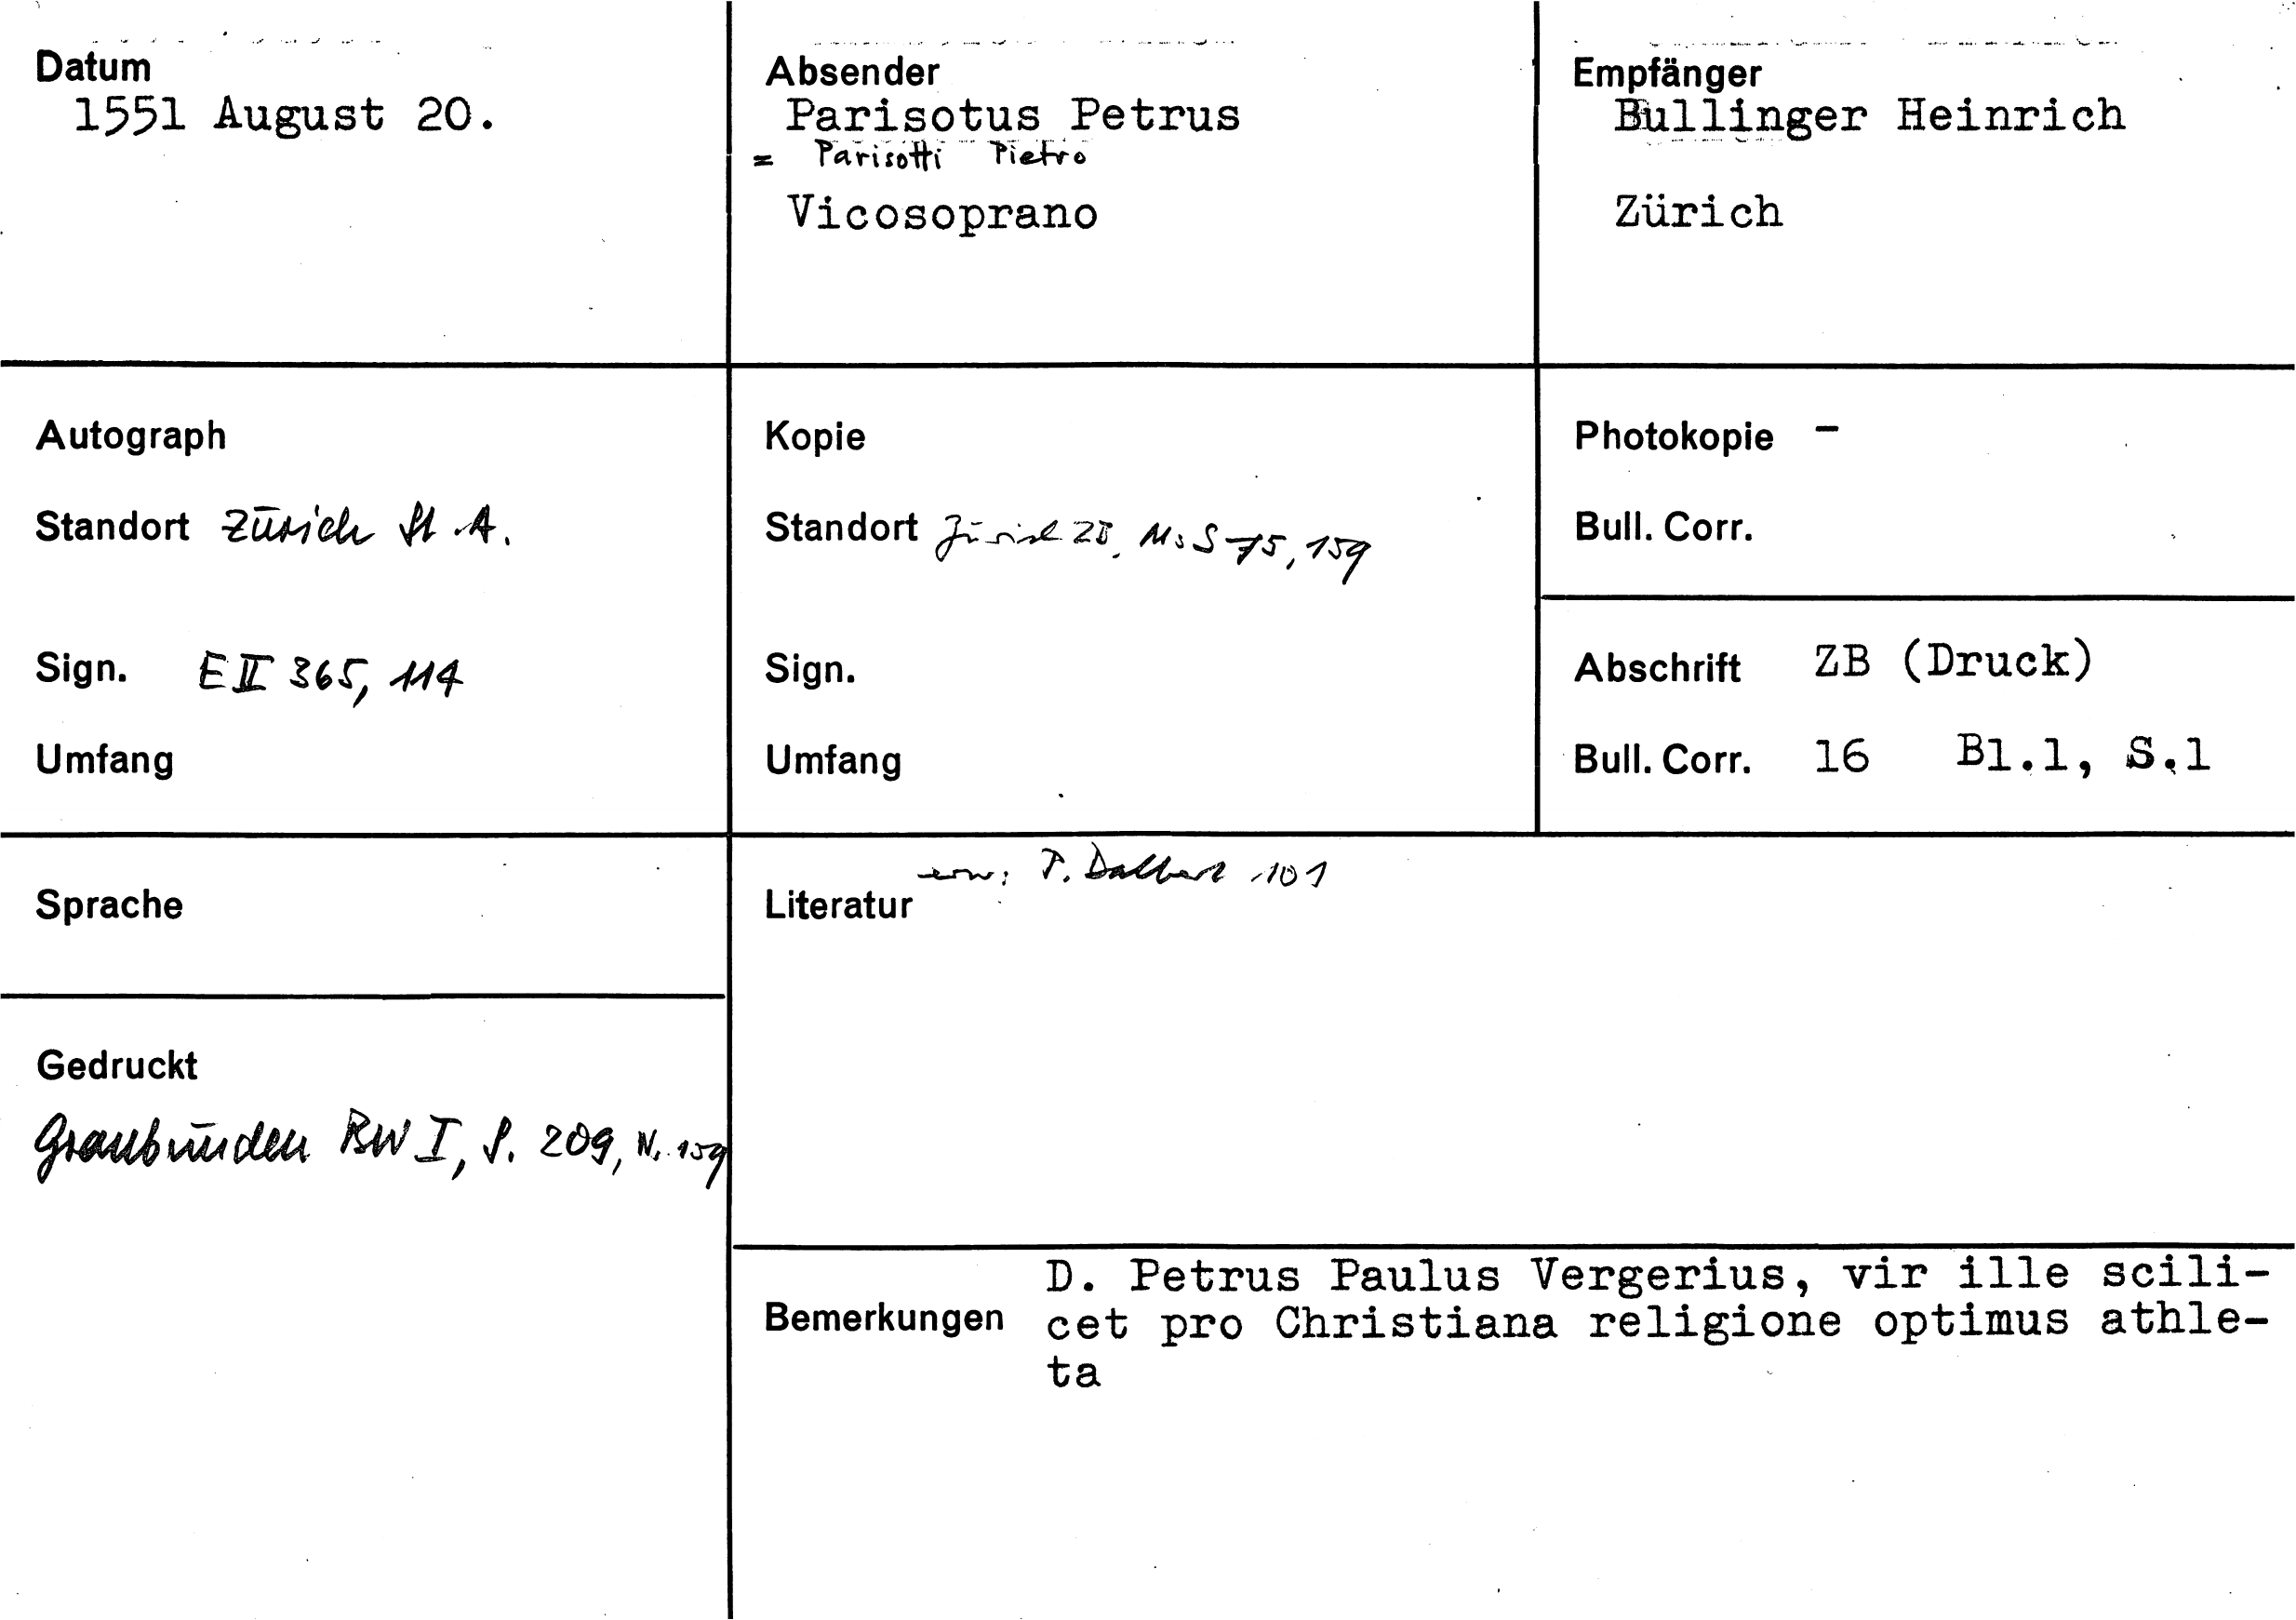 Datum
1551 August 20.
Absender
Parisotus Petrus
= Parisotti Pietro
Vicosoprano
Empfänger
Bullinger Heinrich
Zürich
Autograph
Standort Zürich St.A.
Sign. E II 365, 114
Umfang
Kopie
Standort Zürich ZB, Ms S 75, 159
Sign.
Umfang
Photokopie -
Bull. Corr.
Abschrift ZB (Druck)
Bull. Corr. 16 Bl.1, S.1
Sprache
Gedruckt
Graubünden BW I, S. 209, N. 159
erw: P. Dalbert 101
Literatur
Bemerkungen
D. Petrus Paulus Vergerius, vir ille scili-
cet pro Christiana religione optimus athle-
ta